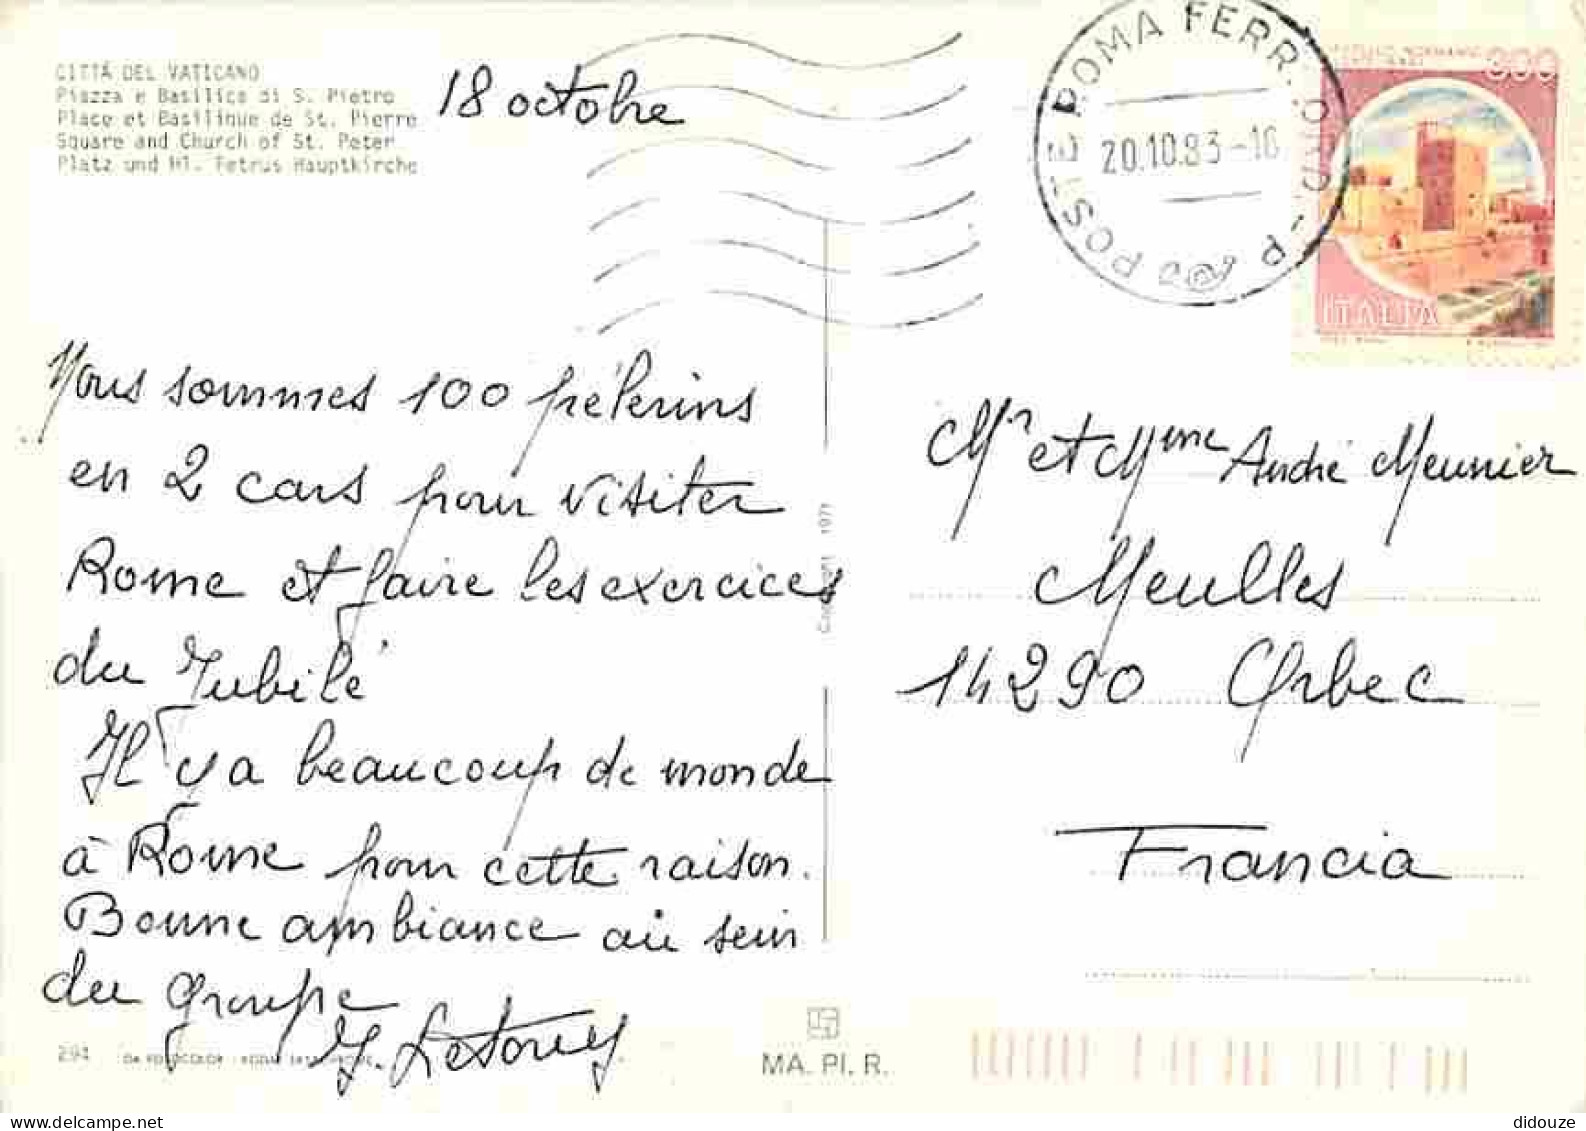 CITTÀ DEL VATICANO
Piazza e Basilica di S. Pietro
Place et Basilique de St. Pierre
Square and Church of St. Peter
Platz und Hl. Petrus Hauptkirche
18 octobre
POSTE ROMA FERR.
20.10.83-16
300
ITALIA
Nous sommes 100 pélerins
en 2 cars pour visiter
Rome et faire les exercices
du Jubilé
Il y a beaucoup de monde
à Rome pour cette raison.
Bonne ambiance au sein
du groupe
Mr et Mme André Meunier
Meulles
14290 Orbec
Francia
294
MA. PI. R.
didouze